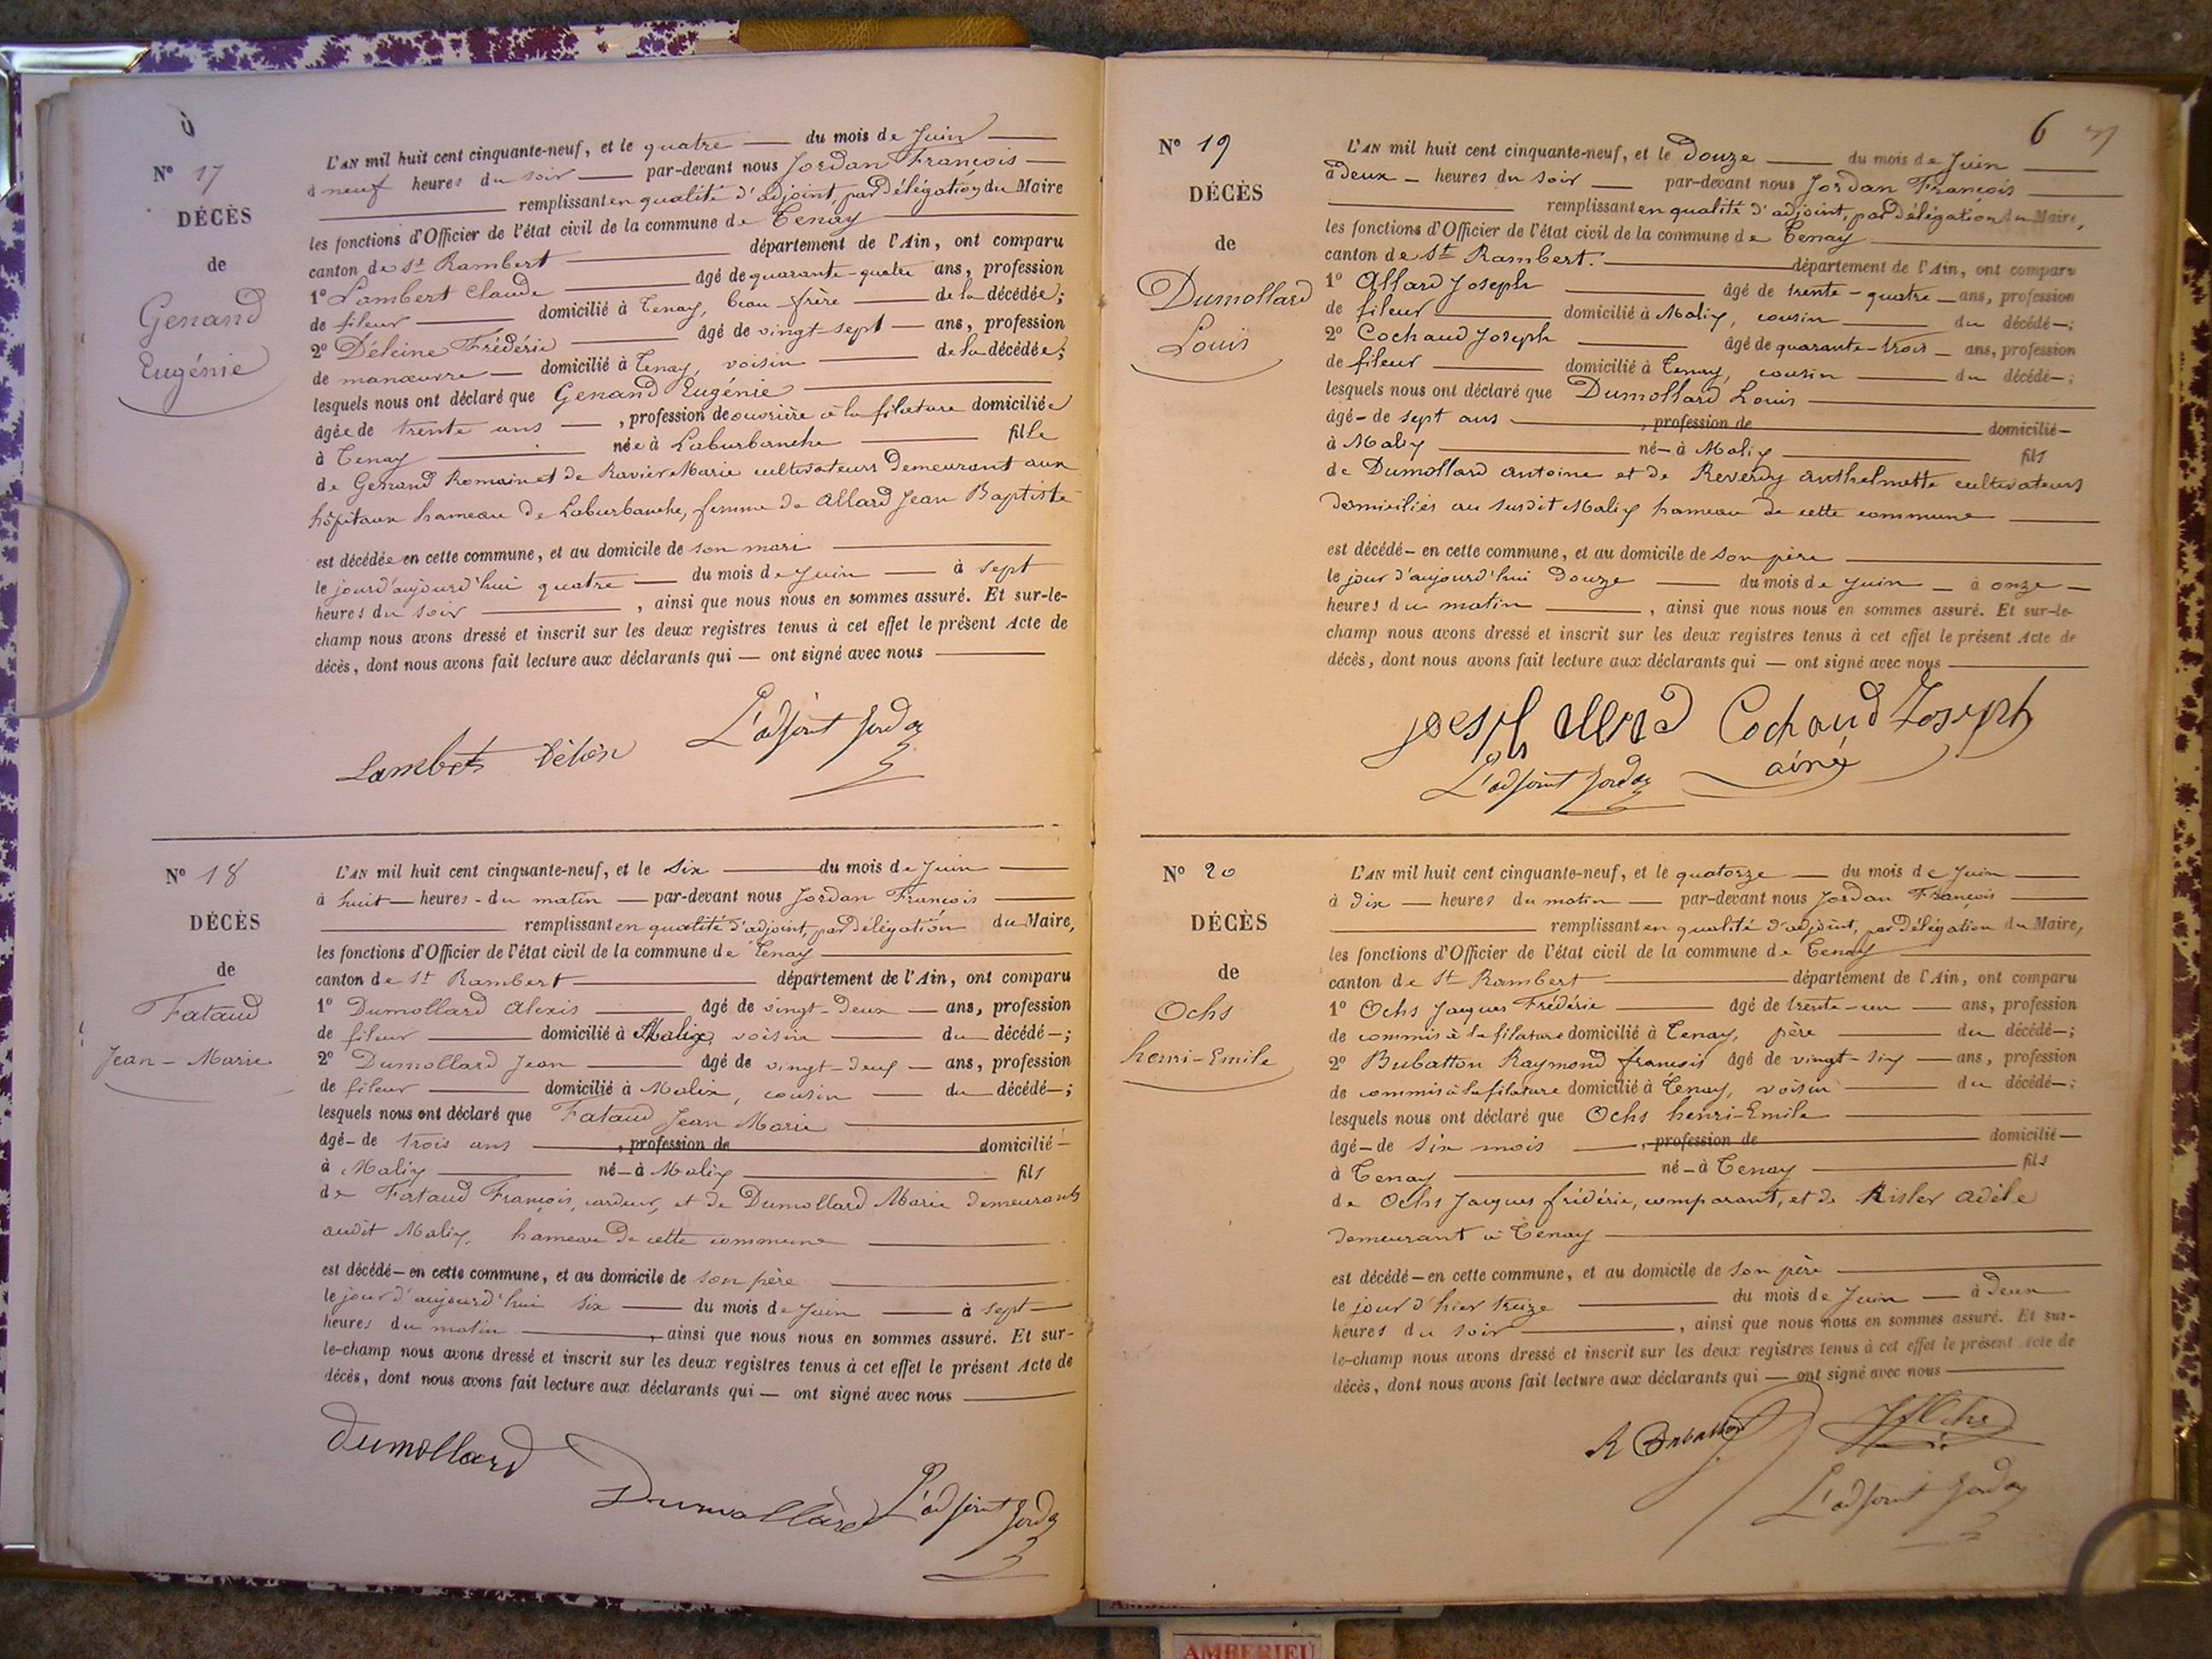 N° 17
DÉCÈS
de
Genand
Eugénie
L'AN mil huit cent cinquante-neuf, et le quatre du mois de Juin
à neuf heures du soir par-devant nous Jordan François
remplissant en qualité d'adjoint, par Délégation du Maire
les fonctions d'Officier de l'état civil de la commune de Tenay
canton de St Rambert département de l'Ain, ont comparu
1° Lambert Claude âgé de quarante-quatre ans, profession
de fileur domicilié à Tenay, beau-frère de la décédée;
2° Déléine Frédéric âgé de vingt-sept ans, profession
de manœuvre domicilié à Tenay, voisin de la décédée;
lesquels nous ont déclaré que Genand Eugénie
âgée de trente ans, profession de ouvrière à la filature domiciliée
à Tenay née à Laburbanche fille
de Genand Romain et de Ravier Marie cultivateurs Demeurant aux
hôpitaux hameau de Laburbanche, femme de Allard Jean Baptiste
est décédée en cette commune, et au domicile de son mari
le jour d'aujourd'hui quatre du mois de Juin à sept
heures du soir, ainsi que nous nous en sommes assuré. Et sur-le-
champ nous avons dressé et inscrit sur les deux registres tenus à cet effet le présent Acte de
décès, dont nous avons fait lecture aux déclarants qui — ont signé avec nous
Lambert L'adjoint Jordan
N° 18
DÉCÈS
de
Fataud
Jean-Marie
L'AN mil huit cent cinquante-neuf, et le six du mois de Juin
à huit heures du matin par-devant nous Jordan François
remplissant en qualité d'adjoint, par Délégation du Maire,
les fonctions d'Officier de l'état civil de la commune de Tenay
canton de St Rambert département de l'Ain, ont comparu
1° Dumollard Alexis âgé de vingt-deux ans, profession
de fileur domicilié à Malix, voisin du décédé;
2° Dumollard Jean âgé de vingt-deux ans, profession
de fileur domicilié à Malix, cousin du décédé;
lesquels nous ont déclaré que Fataud Jean Marie
âgé de trois ans, profession de domicilié
à Malix né à Malix fils
de Fataud François, cardeur, et de Dumollard Marie Demeurants
audit Malix, hameau de cette commune
est décédé en cette commune, et au domicile de son père
le jour d'aujourd'hui six du mois de Juin à sept
heures du matin, ainsi que nous nous en sommes assuré. Et sur-
le-champ nous avons dressé et inscrit sur les deux registres tenus à cet effet le présent Acte de
décès, dont nous avons fait lecture aux déclarants qui — ont signé avec nous
Dumollard
Dumollard L'adjoint Jordan
6
N° 19
DÉCÈS
de
Dumollard
Louis
L'AN mil huit cent cinquante-neuf, et le Douze du mois de Juin
à deux heures du soir par-devant nous Jordan François
remplissant en qualité d'adjoint, par Délégation du Maire,
les fonctions d'Officier de l'état civil de la commune de Tenay
canton de St Rambert. département de l'Ain, ont comparu
1° Allard Joseph âgé de trente-quatre ans, profession
de fileur domicilié à Malix, cousin du décédé;
2° Cochaud Joseph âgé de quarante-trois ans, profession
de fileur domicilié à Tenay, cousin du décédé;
lesquels nous ont déclaré que Dumollard Louis
âgé de sept ans, profession de domicilié
à Malix né à Malix fils
de Dumollard Antoine et de Reverdy Anthelmette cultivateurs
domiciliés au susdit Malix hameau de cette commune
est décédé en cette commune, et au domicile de son père
le jour d'aujourd'hui Douze du mois de Juin à onze
heures du matin, ainsi que nous nous en sommes assuré. Et sur-le-
champ nous avons dressé et inscrit sur les deux registres tenus à cet effet le présent Acte de
décès, dont nous avons fait lecture aux déclarants qui — ont signé avec nous
Cochaud Joseph
L'adjoint Jordan ainé
N° 20
DÉCÈS
de
Ochs
henri-Emile
L'AN mil huit cent cinquante-neuf, et le quatorze du mois de Juin
à Dix heures du matin par-devant nous Jordan François
remplissant en qualité d'adjoint, par Délégation du Maire,
les fonctions d'Officier de l'état civil de la commune de Tenay
canton de St Rambert département de l'Ain, ont comparu
1° Ochs Jacques Frédéric âgé de trente-un ans, profession
de commis à la filature domicilié à Tenay, père du décédé;
2° Bubatton Raymond françois âgé de vingt-six ans, profession
de commis à la filature domicilié à Tenay, voisin du décédé;
lesquels nous ont déclaré que Ochs henri-Emile
âgé de six mois, profession de domicilié
à Tenay né à Tenay fils
de Ochs Jacques frédéric, comparant, et de Risler Adèle
demeurant à Tenay
est décédé en cette commune, et au domicile de son père
le jour d'hier treize du mois de Juin à Deux
heures du soir, ainsi que nous nous en sommes assuré. Et sur-
le-champ nous avons dressé et inscrit sur les deux registres tenus à cet effet le présent Acte de
décès, dont nous avons fait lecture aux déclarants qui — ont signé avec nous
R Bubatton JfOchs
L'adjoint Jordan
AMBERIEU